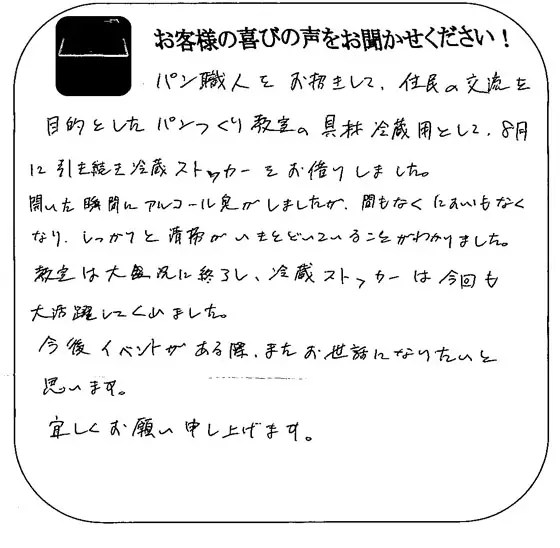 お客様の喜びの声をお聞かせください!
パン職人をお招きして、住民の交流を
目的としたパンつくり教室の具材冷蔵用として、8月
に引き続き冷蔵ストッカーをお借りしました。
開いた瞬間にアルコール臭がしましたが、間もなくにおいもなく
なり、しっかりと清掃がいきとどいていることがわかりました。
教室は大盛況に終了し、冷蔵ストッカーは今回も
大活躍してくれました。
今後イベントがある際、またお世話になりたいと
思います。
宜しくお願い申し上げます。